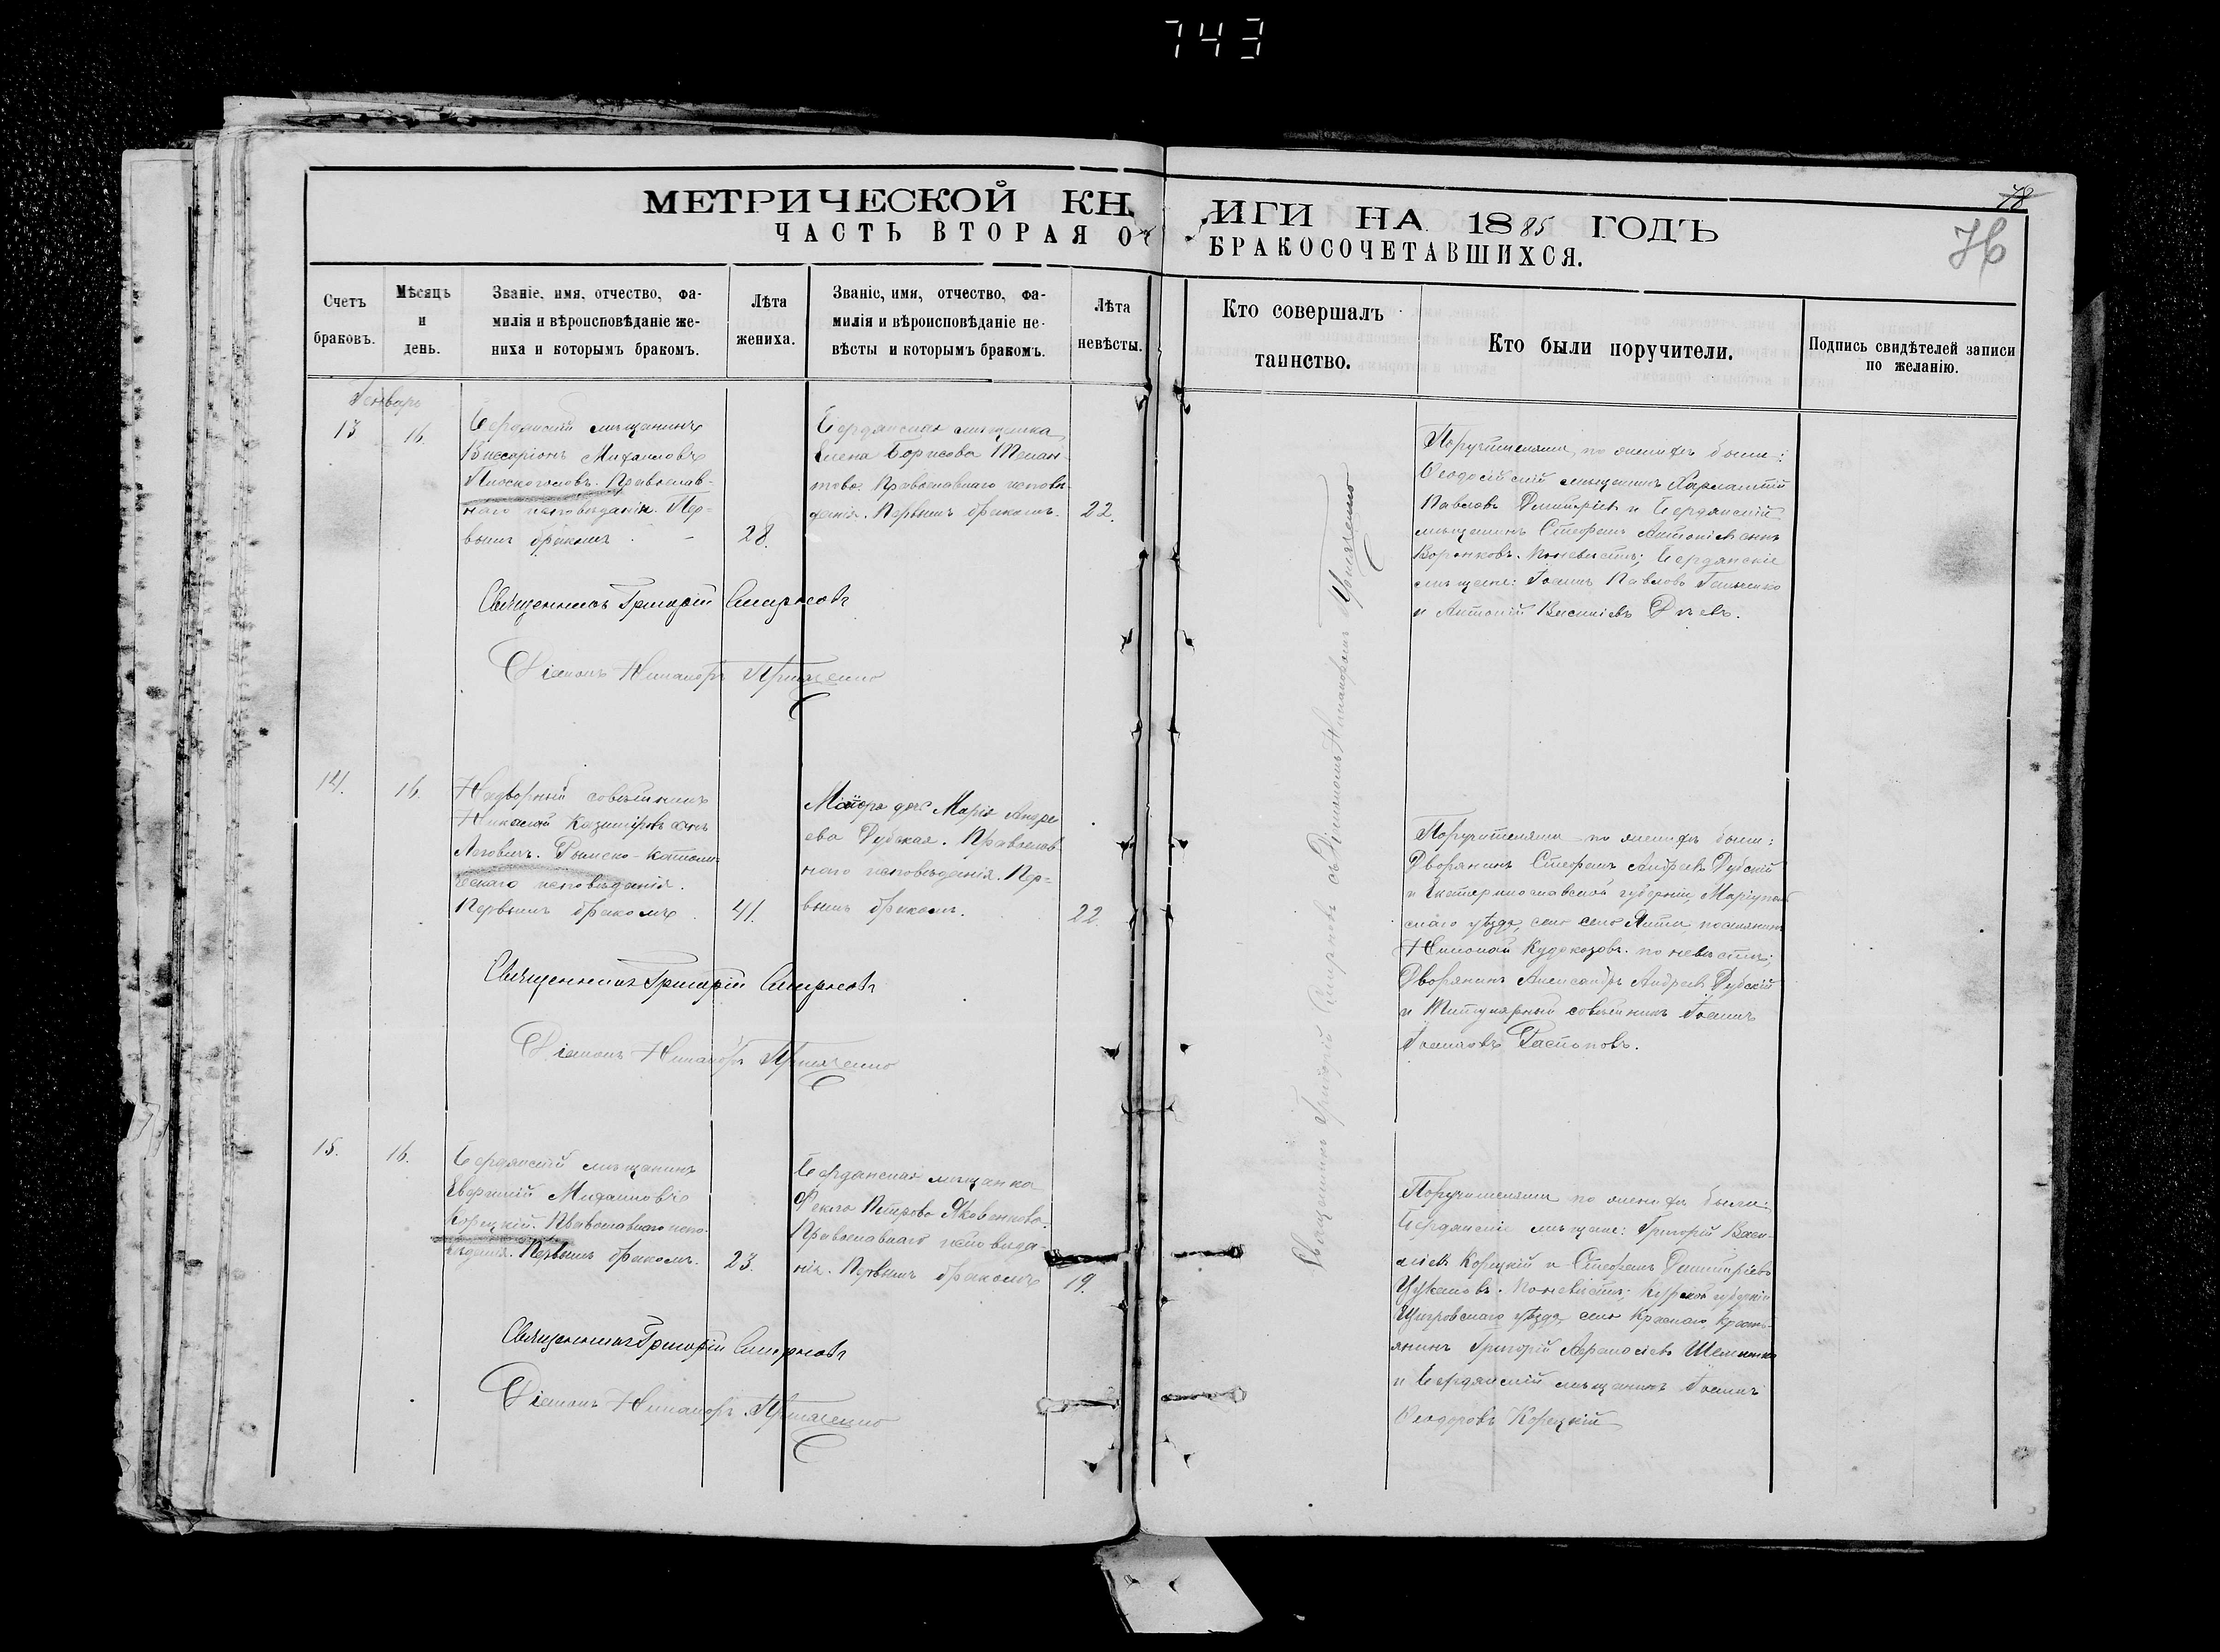 743
МЕТРИЧЕСКОЙ КНИГИ НА 1885 ГОДЪ
ЧАСТЬ ВТОРАЯ О БРАКОСОЧЕТАВШИХСЯ.
78
76
Счетъ браковъ.
Мѣсяцъ и день.
Званіе, имя, отчество, фа-
милія и вѣроисповѣданіе же-
ниха и которымъ бракомъ.
Лѣта жениха.
Званіе, имя, отчество, фа-
милія и вѣроисповѣданіе не-
вѣсты и которымъ бракомъ.
Лѣта невѣсты.
Кто совершалъ
таинство.
Кто были поручители.
Подпись свидѣтелей записи
по желанію.
Генварь
13
16.
Бердянскій мѣщанинъ
Виссаріонъ Михаиловъ
Плоскоголовъ. Православ-
наго исповѣданія. Пер-
вымъ бракомъ.
28.
Бердянская мѣщанка
Елена Борисова
Православнаго исповѣ-
данія. Первымъ бракомъ.
22.
Священникъ Григорій Смирновъ
Діаконъ Никаноръ
Поручителями по женихѣ были:
Ѳеодосійскій мѣщанинъ Харлампій
Павловъ Димитріевъ и Бердянскій
мѣщанинъ Стефанъ
Воронковъ. По невѣстѣ; Бердянскіе
мѣщане: Іоаннъ Павловъ
и Антоній Василіевъ
14.
16.
Надворный совѣтникъ
Николай Казиміровъ сынъ
Римско-католи-
ческаго исповѣданія.
Первымъ бракомъ.
41.
Маіора дочь Марія Андре
ева Дубская. Православ
наго исповѣданія. Пер-
вымъ бракомъ.
22.
Священникъ Григорій Смирновъ
Діаконъ Никаноръ
Поручителями по женихѣ были:
Дворянинъ Стефанъ Андреевъ Дубскій
и Екатеринославской губерніи, Маріуполь
скаго уѣзда, село Ялты поселянинъ
Николай по невѣстѣ;
Дворянинъ Александръ Андреевъ Дубскій
и Титулярный совѣтникъ Іоаннъ
Іоанновъ Распоповъ.
15.
16.
Бердянскій мѣщанинъ
Евгеній Михаиловъ
Корецкій. Православнаго испо-
вѣданія. Первымъ бракомъ.
23.
Бердянская мѣщанка
Ѳекла Петрова Яковенкова.
Православнаго исповѣда-
нія. Первымъ бракомъ
19.
Священникъ Григорій Смирновъ
Діаконъ Никаноръ
Поручителями по женихѣ были:
Бердянскіе мѣщане: Григорій Васи-
ліевъ Корецкій и Стефанъ Димитріевъ
По невѣстѣ; Курской губерніи
Щигровскаго уѣзда, села Краснаго, кресть-
янинъ Григорій Аѳанасіевъ
и Бердянскій мѣщанинъ Іоаннъ
Ѳеодоровъ Корецкій
Священникъ Григорій Смирновъ съ Діакономъ Никаноромъ